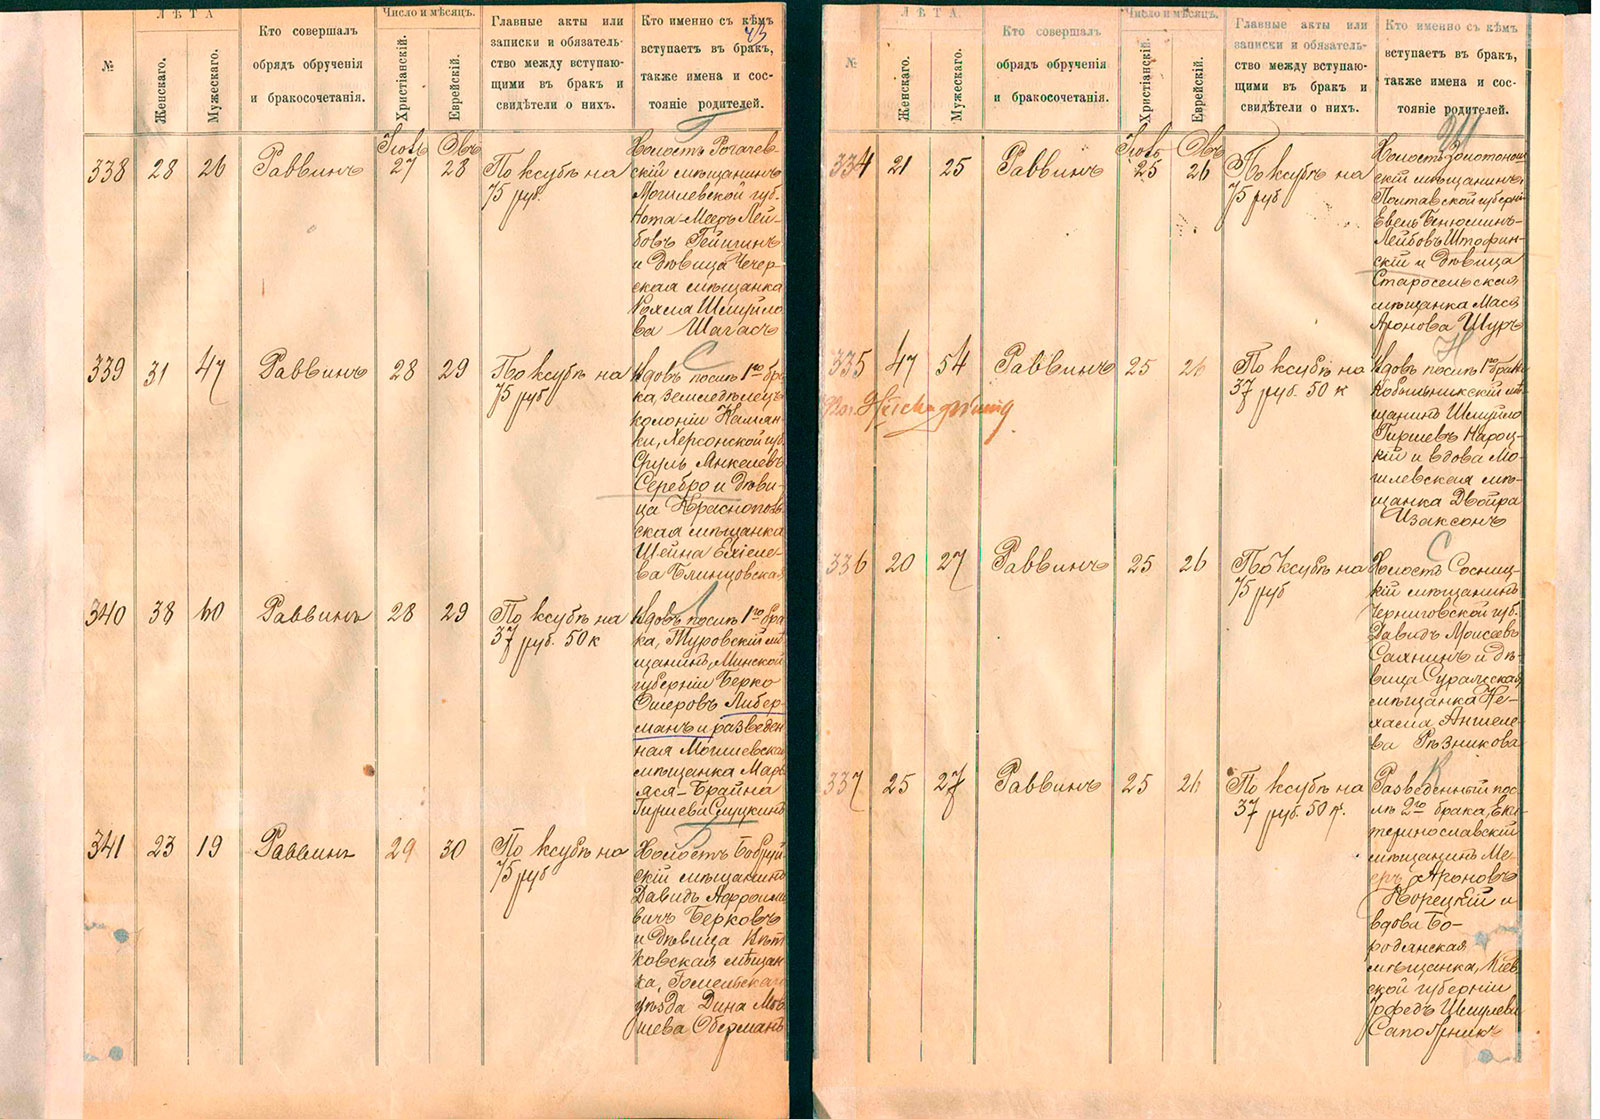 43
№
ЛѢТА
Женскаго.
Мужескаго.
Кто совершалъ
обрядъ обрученія
и бракосочетанія.
Число и мѣсяцъ.
Христіанскій.
Еврейскій.
Главные акты или
записки и обязатель-
ство между вступаю-
щими въ бракъ и
свидѣтели о нихъ.
Кто именно съ кѣмъ
вступаетъ въ бракъ,
также имена и сос-
тояніе родителей.
338 28 26 Раввинъ 27 28
По ксубѣ на
75 руб.
Холостъ Рогачев-
скій мѣщанинъ
Могилевской губ.
Нота-Мееръ Лей-
бовъ Гейшинъ
и дѣвица Чечер-
ская мѣщанка
Рохля Шмуйло-
ва Шагасъ
339 31 47 Раввинъ 28 29
По ксубѣ на
75 руб
С
Вдовъ послѣ 1го бра-
ка, земледѣлецъ
колоніи
Херсонской губ.
Сруль Янкелевъ
Серебро и дѣви-
ца Краснополь-
ская мѣщанка
Шейна Ехіеле-
ва Блинцовская
340 38 60 Раввинъ 28 29
По ксубѣ на
37 руб. 50 к
Л
Вдовъ послѣ 1го бра-
ка, Туровскій мѣ-
щанинъ, Минской
губерніи Берко
Ошеровъ Либер-
манъ и разведен-
ная Могилевская
мѣщанка Марь-
яся-Брайна
Гиршева Слуцкинъ
341 23 19 Раввинъ 29 30
По ксубѣ на
75 руб
Б
Холостъ Бобруй-
скій мѣщанинъ
Давидъ
Берковъ
и дѣвица Вѣт-
ковская мѣщан-
ка, Гомельскаго
уѣзда Дина Мов-
шева Оберманъ
№
ЛѢТА.
Женскаго.
Мужескаго.
Кто совершалъ
обрядъ обрученія
и бракосочетанія.
Число и мѣсяцъ.
Христіанскій.
Еврейскій.
Главные акты или
записки и обязатель-
ство между вступаю-
щими въ бракъ и
свидѣтели о нихъ.
Кто именно съ кѣмъ
вступаетъ въ бракъ,
также имена и сос-
тояніе родителей.
334 21 25 Раввинъ 25 26
По ксубѣ на
75 руб
Ш
Холостъ Золотонош-
скій мѣщанинъ,
Полтавской губерніи
Евель Бенюминъ-
Лейбовъ Штофин-
скій и дѣвица
Старосельская
мѣщанка Мася
Аронова Шуръ
335 47 54 Раввинъ 25 26
По ксубѣ на
37 руб. 50 к
Н
Вдовъ послѣ 1го брака
Кобыльникскій мѣ-
щанинъ Шмуйло
Гиршевъ Нароц-
кій и вдова Мо-
гилевская мѣ-
щанка Двойра
Изаксонъ
336 20 27 Раввинъ 25 26
По ксубѣ на
75 руб
С
Холостъ Сосниц-
кій мѣщанинъ
Черниговской губ.
Давидъ Моисеевъ
Саянинъ и дѣ-
вица Суражская
мѣщанка Не-
хама Аншеле-
ва Рѣзникова
337 25 27 Раввинъ 25 26
По ксубѣ на
37 руб. 50 к.
К
Разведенный пос-
лѣ 2го брака, Ека-
теринославскій
мѣщанинъ Ме-
еръ Ароновъ
Корецкій и
вдова Бо-
родянская
мѣщанка, Кіев-
ской губерніи
Шмулева
Сапожникъ